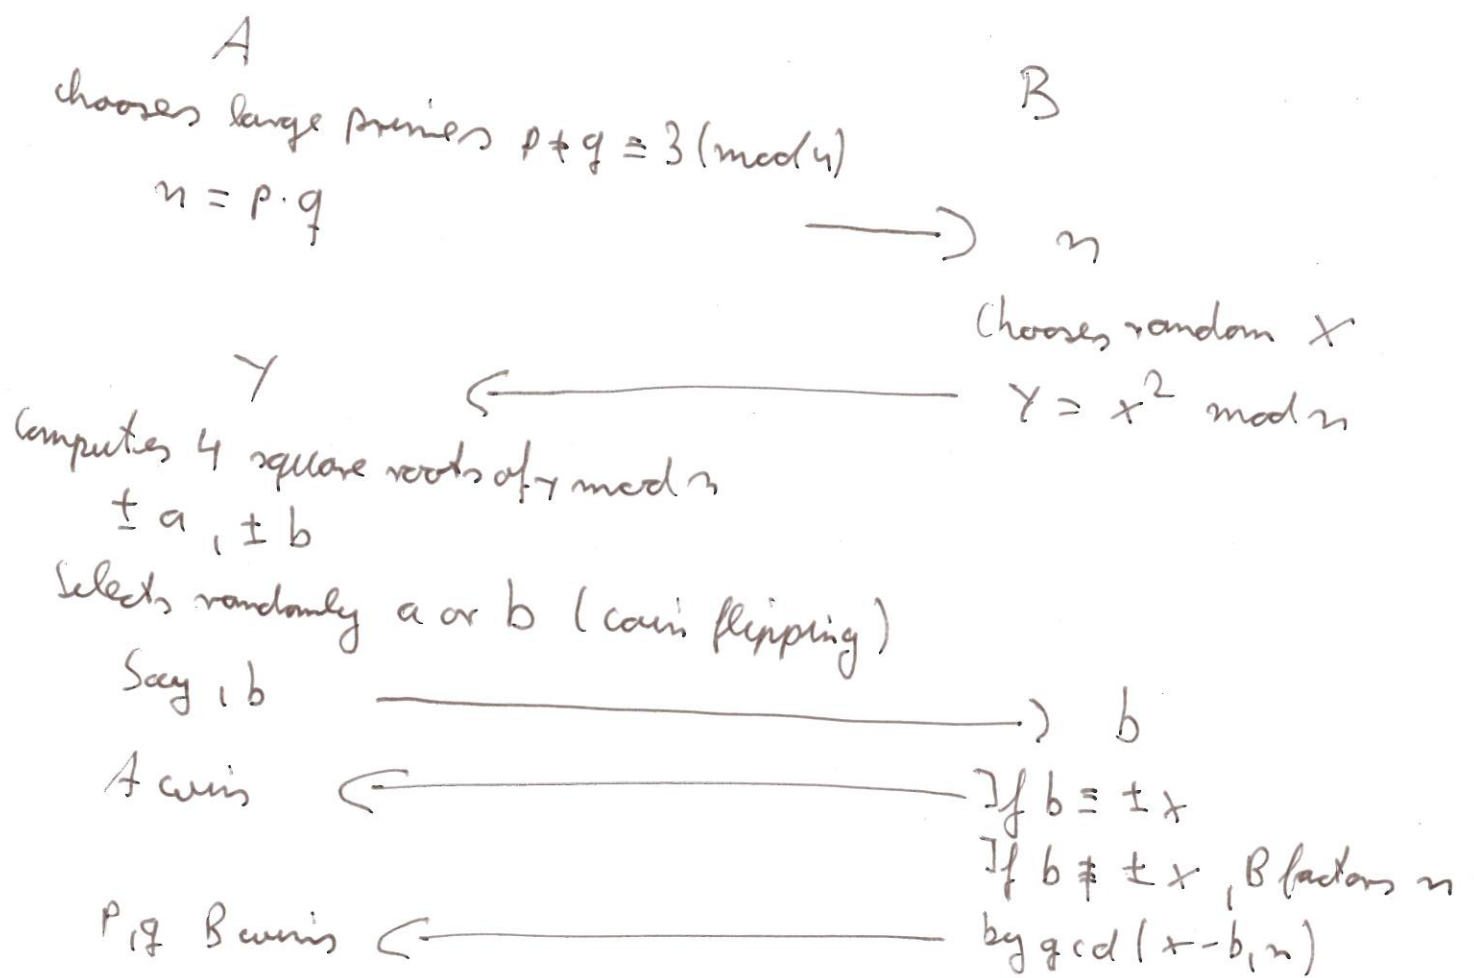 A
B
chooses large primes p ≠ q ≡ 3 (mod 4)
n = p · q
→ n
Chooses random x
Y
← Y = x² mod n
Computes 4 square roots of Y mod n
± a, ± b
Selects randomly a or b (coin flipping)
Say, b → b
A wins ← If b ≡ ± x
If b ≢ ± x, B factors n
p, q B wins ← by gcd(x-b, n)